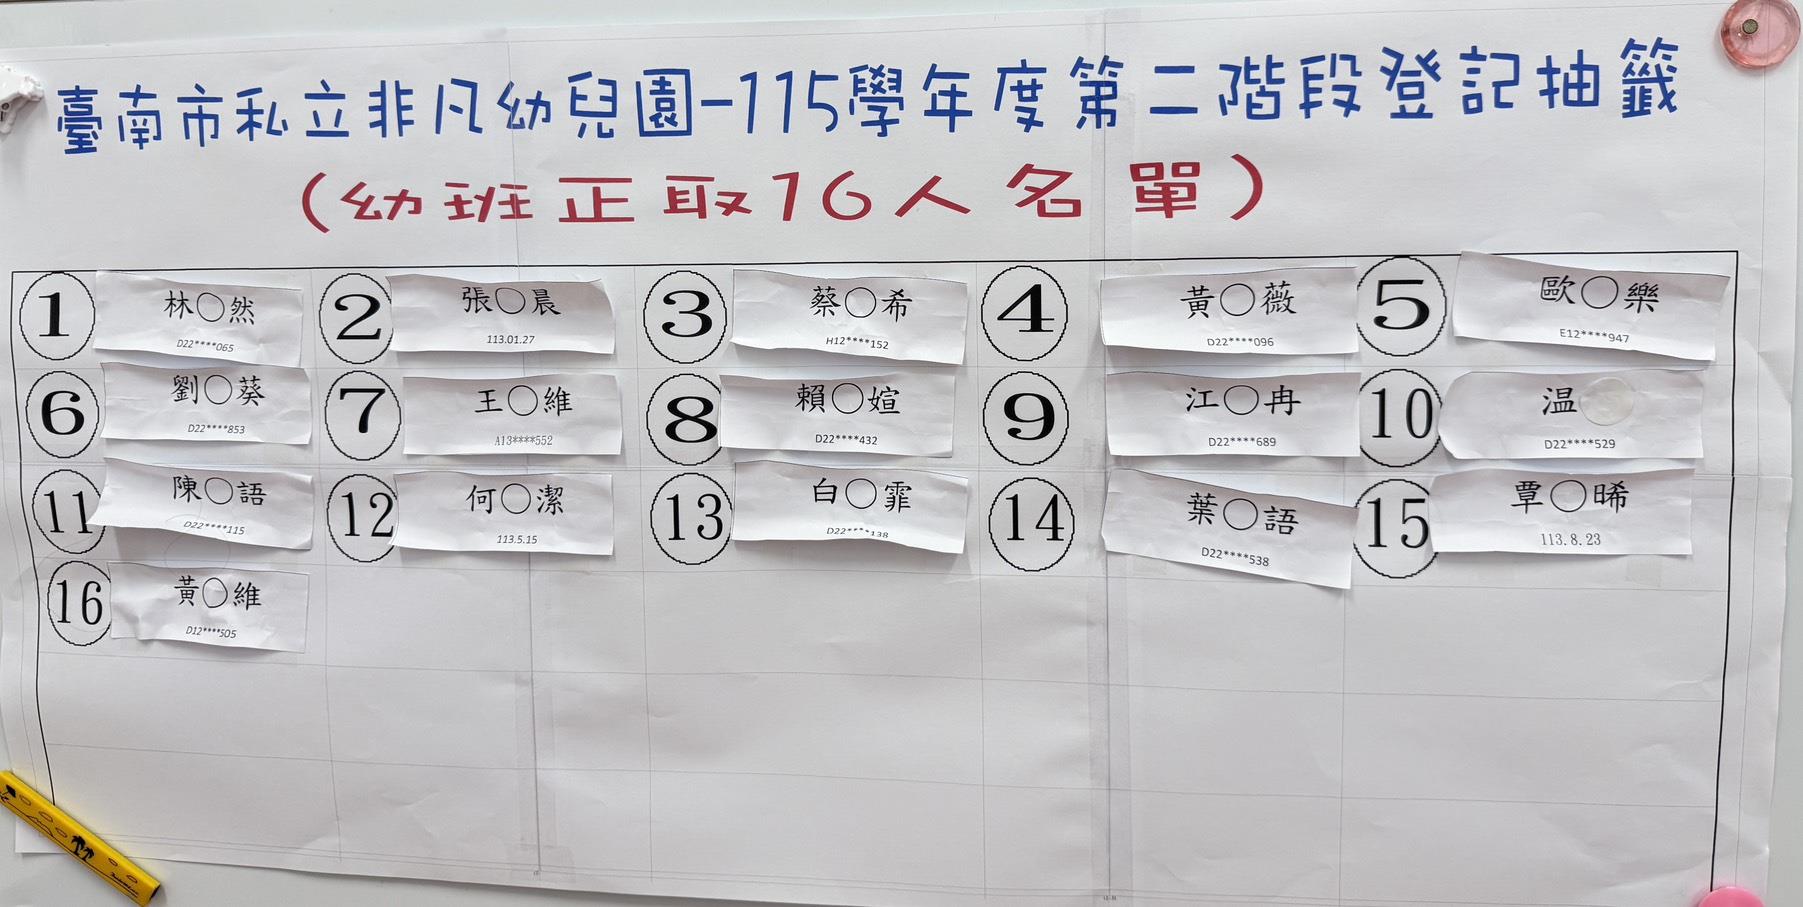 臺南市私立非凡幼兒園-115學年度第二階段登記抽籤
(幼班正取16人名單)
1 林○然 2 張○晨 3 蔡○希 4 黃○薇 5 歐○樂
D22****065 113.01.27 H12****152 D22****096 E12****947
6 劉○葵 7 王○維 8 賴○媗 9 江○冉 10 温
D22****853 A13****552 D22****432 D22****689 D22****529
11 陳○語 12 何○潔 13 白○霏 14 葉○語 15 覃○晞
D22****115 113.5.15 D22****138 D22****538 113.8.23
16 黃○維
D12****505